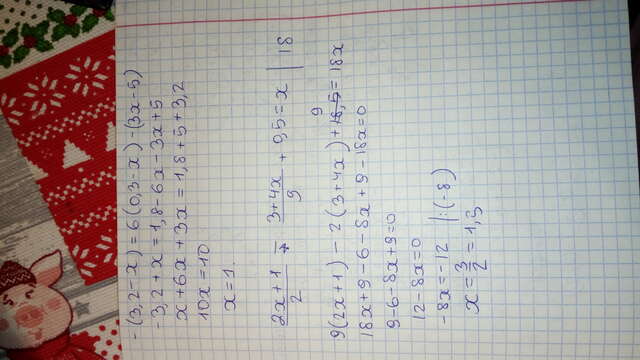 -(3,2-x)=6(0,3-x)-(3x-5)
-3,2+x=1,8-6x-3x+5
x+6x+3x=1,8+5+3,2
10x=10
x=1.
(2x+1)/2 - (3+4x)/9 + 0,5=x | 18
9(2x+1)-2(3+4x)+9=18x
18x+9-6-8x+9-18x=0
9-6-8x+9=0
12-8x=0
-8x=-12 |:(-8)
x=3/2=1,5